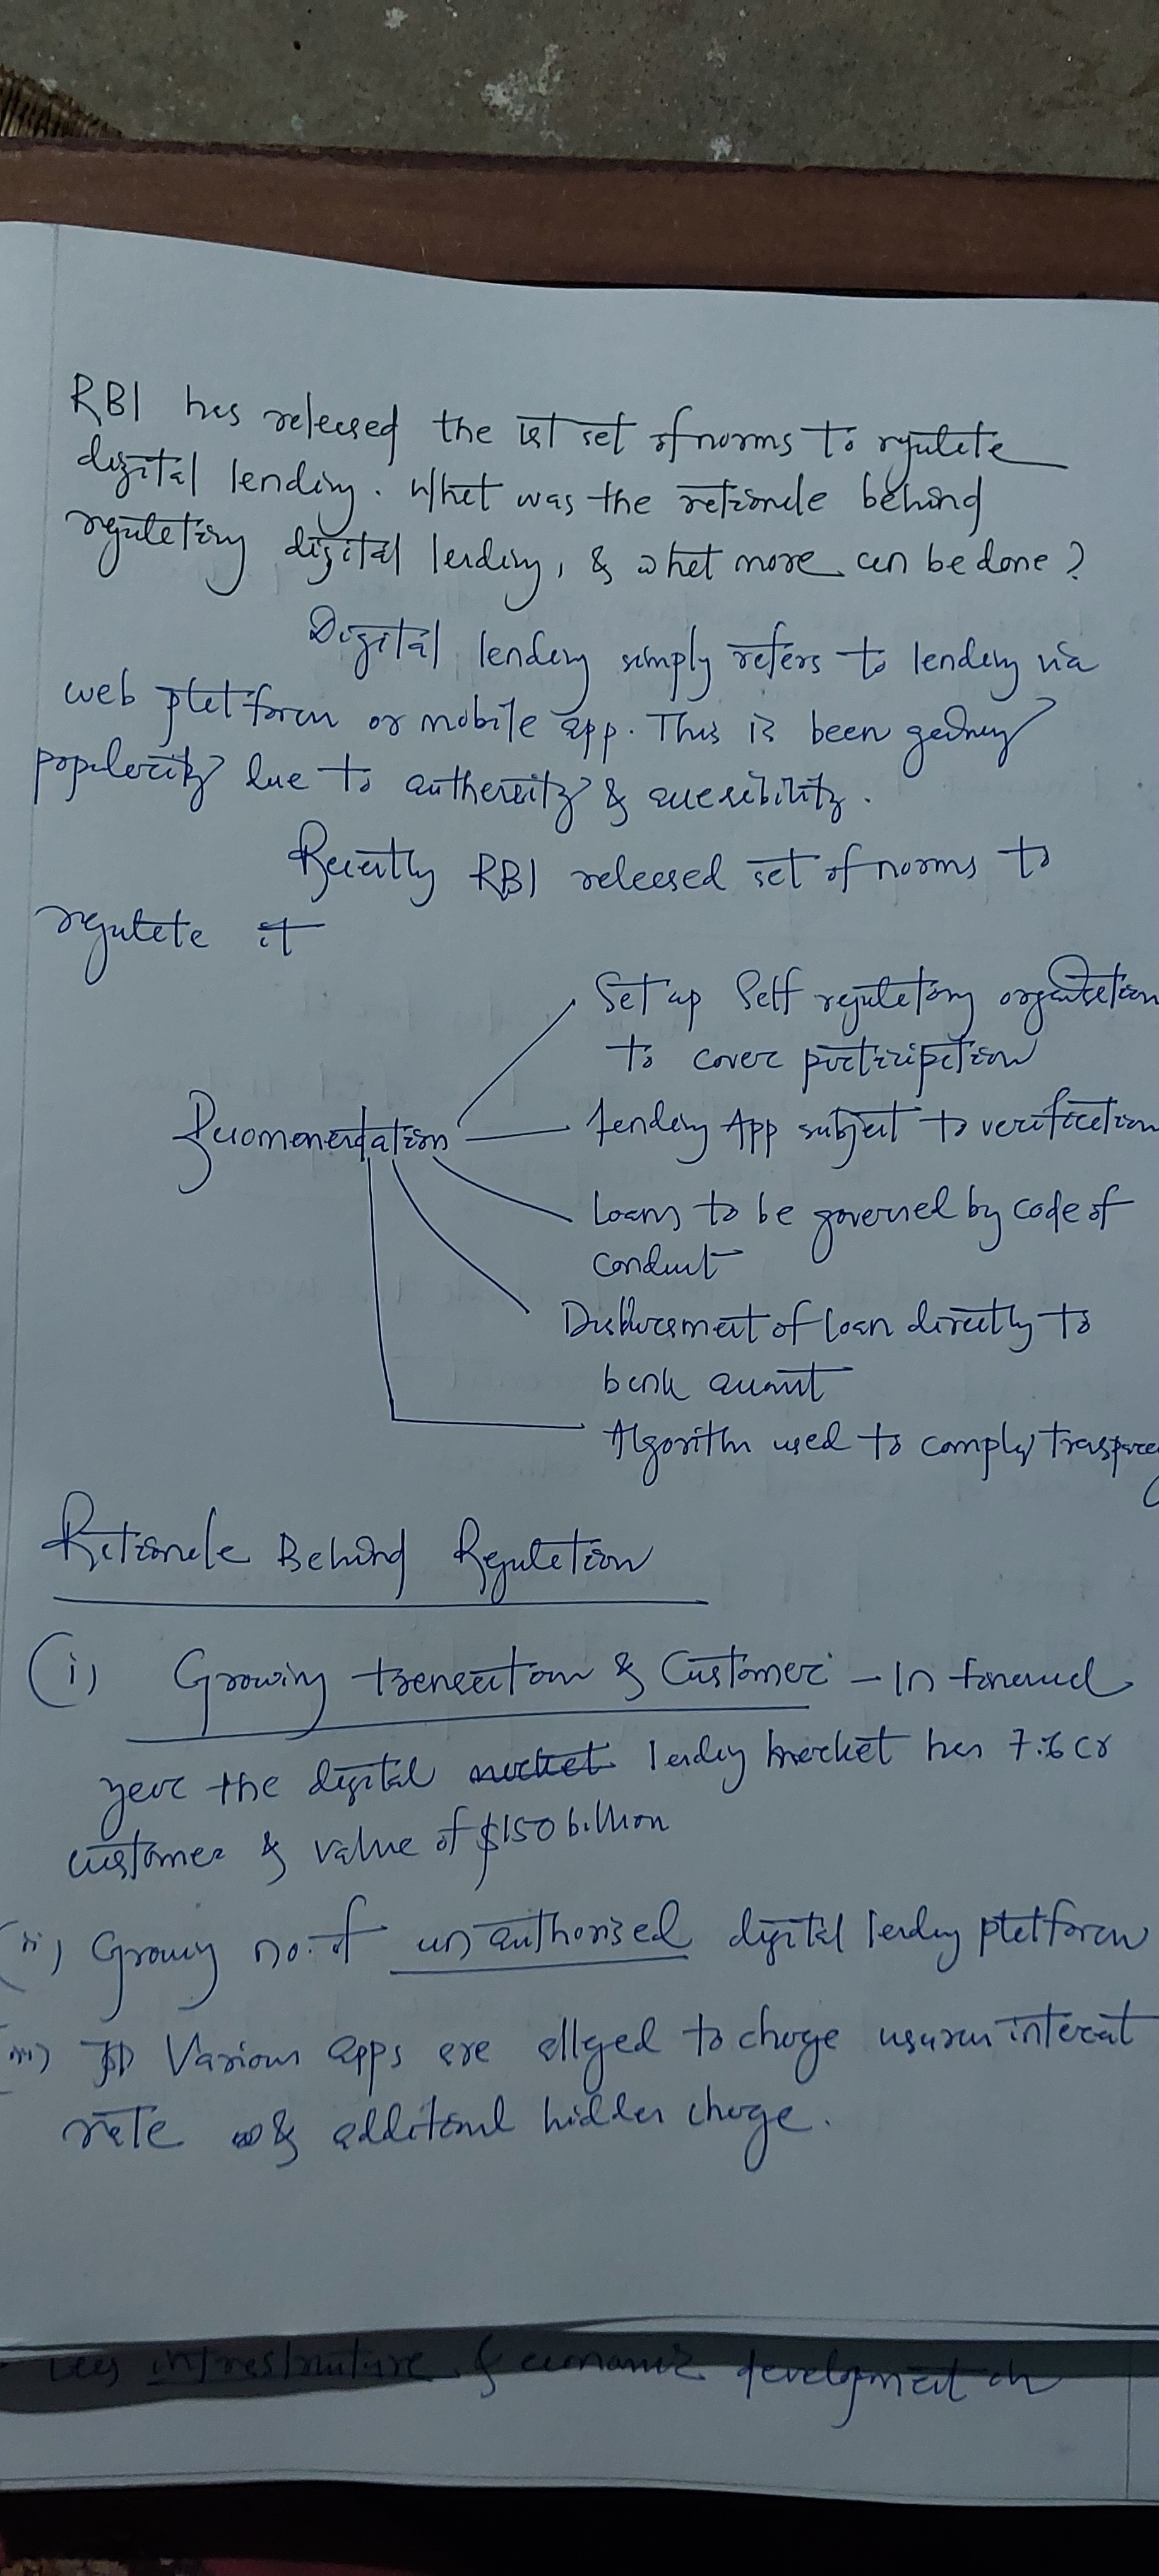 RBI has released the 1st set of norms to regulate
digital lending. What was the rationale behind
regulating digital lending, & what more can be done?
Digital lending simply refers to lending via
web platform or mobile app. This is been gaining
popularity due to & accessibility.
Recently RBI released set of norms to
regulate it
Set up Self regulatory organisation
to cover participation
Recommendation
Lending App subject to verification
Loans to be governed by code of
conduct
Disbursment of loan directly to
bank account
Algorithm used to comply
Rationale Behind Regulation
(i) Growing transaction & Customer - In financial
year the digital lending market has 7.6 cr
customer & value of $150 billion
(ii) Growing no. of unauthorised digital lending platform
(iii) Various apps are alleged to charge interest
rate & additional hidden charge.
infrastructure & economic development